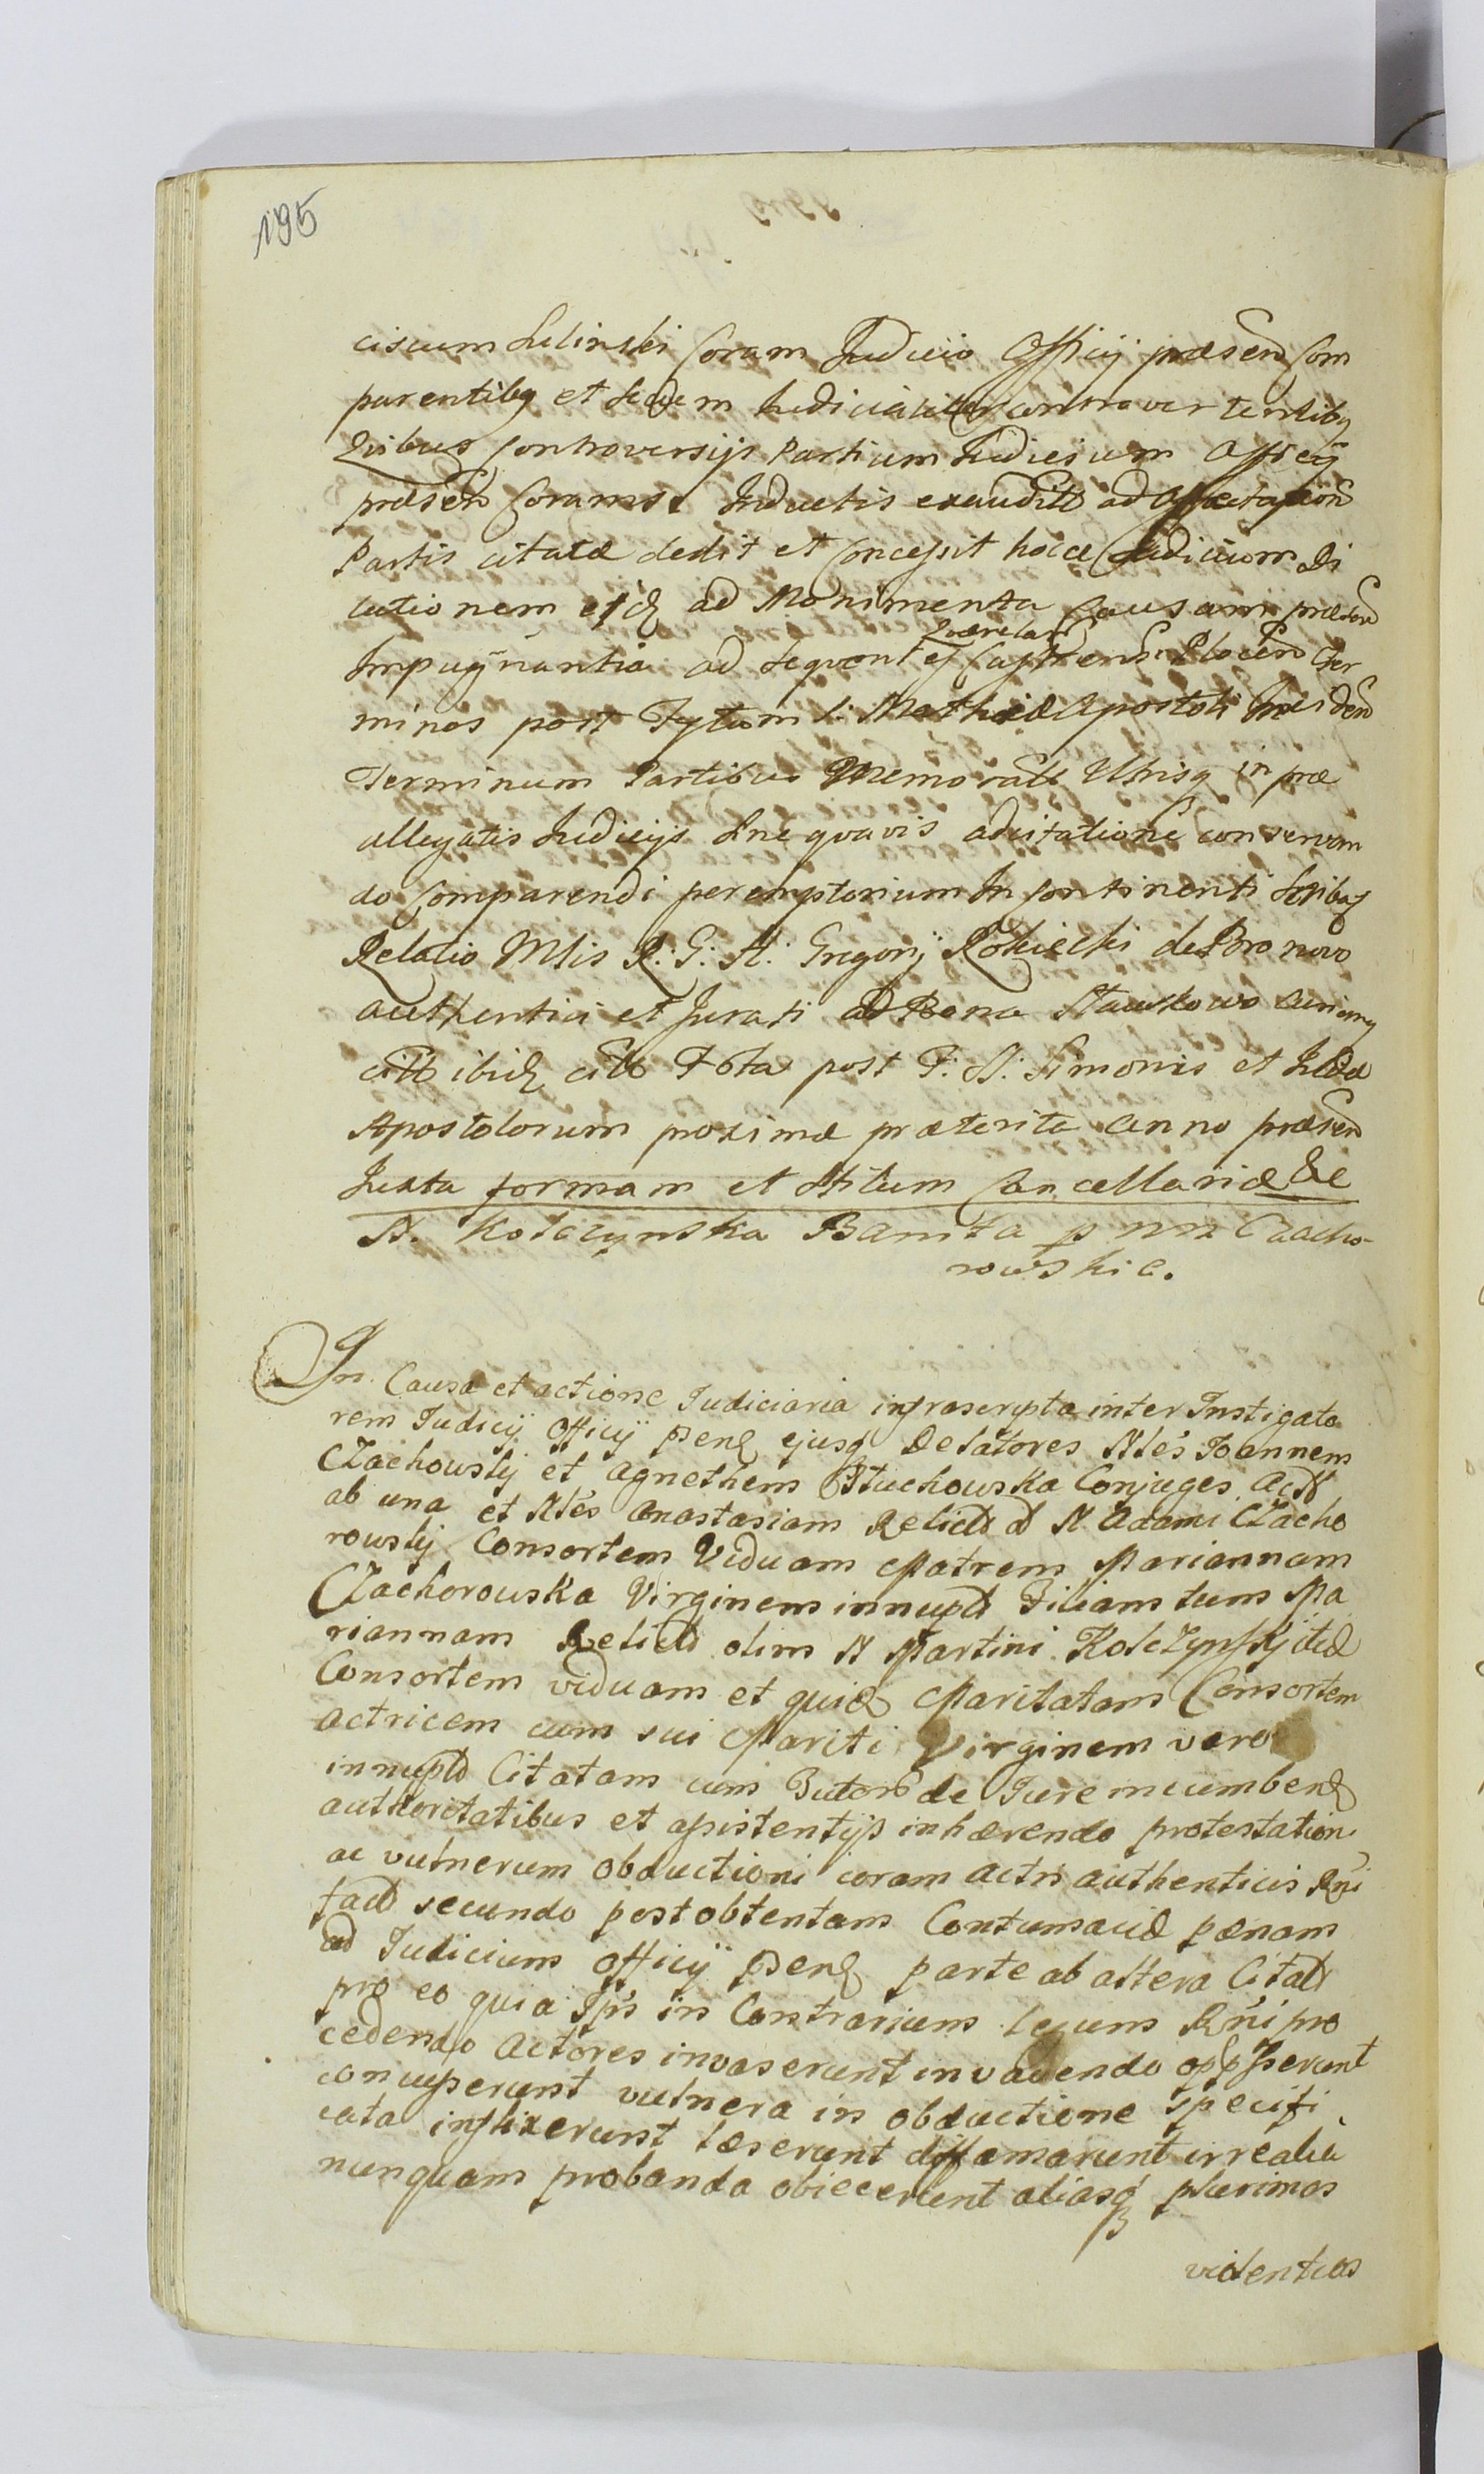 195
ciscum Lilinski Coram Judicio Officij præsen Com
parentibq et secum Judicialiter controvertentibq
Quibus Controversijs Partium Judicium Officij
præsen Coram se Inductis exauditt ad affectation
Partis citatæ dedit et Concessit hocce Judicium Di
lationem ejsd ad Monimenta Causam præsen
Querelar
Impugnantia ad sequent ej Castrens Plocen Ter
minos post Fstum S: Mathiæ Apostoli Inciden
Terminum Partibus Memoratt Utrisq in præ
allegatis Judicijs sine quavis adcitatione conservan
do Comparendi peremptorium In Continenti scribaj
Relatio Mlis R: G: A: Gregorij Rokicki de Bronowo
authentici et Jurati ad Bona Stawkowo
citt ibid citt Fta post F: S: Simonis et Judæ
Apostolorum proxime præterita anno præsen
Juxta formam et stilum Cancellariæ &c
N. Kolczynska Banita p nn Czacho-
rowskie.
In Causa et actione Judiciaria infrascripta inter Instigato
rem Judicij Officij psenq ejusq Delatores Nles Joannem
Czachowskj et Agnethem Stuchowska Conjuges Act
ab una et Nles Anastasiam Relict d N Adami Czacho
rowskj Consortem Viduam Matrem Mariannam
Czachorowska Virginem innupt Filiam tum Ma
riannam Relict olim N Martini Kolczynskj itid
Consortem viduam et quid Maritatam Consortem
actricem cum sui Mariti Virginem vero
innupt Citatam cum Tutor de Jure incumbenq
authoritatibus et assistentijs inhærendo protestation
ac vulnerum obductioni coram actis authenticis Rni
fact secundo post obtentam Contumaciæ pænam
ad Judicium officij psenq parte ab altera Citatt
pro eo quia Ipsi in Contrarium legum Rni pro
cedendo Actores invaserunt invadendo oppsserunt
concusserunt vulnera in obductione specifi
cata inflixerunt læserunt diffamarunt irrealia
nunquam probanda obiecerunt aliasq plurimas
violentias